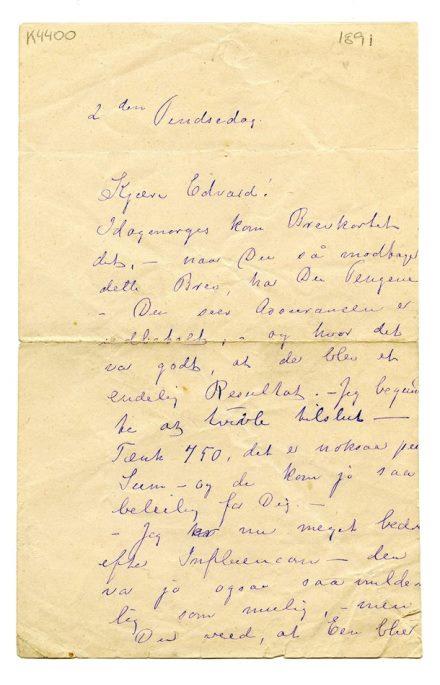 K4400
1891
2den Pindsedag.
Kjære Edvard!
Idagmorges kom Brevkortet
dit, – naar Du så modtager
dette Brev, har Du Pengene
– Du seer Assuransen er
udbetalt, – og hvor det
var godt, at der blev et
endelig Resultat. – Jeg begyn
te at tvivle tilslut –
Tænk 750, det er noksaa pen
Sum – og de kom jo saa
beleilig for Dig. –
– Jeg er nu meget bedre
efter Influenzaen – den
var jo ogsaa saa milde
lig som mulig, – men
Du veed, at Een blir